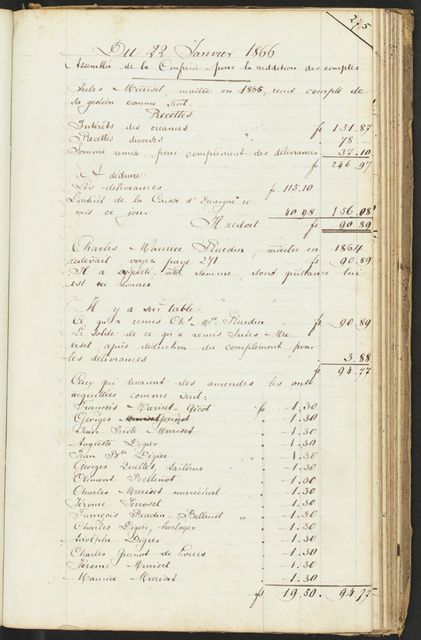 275
Du 22 Janvier 1866
Assemblée de la Confrérie pour la reddition des comptes
Jules Muriset, maître en 1865, rend compte de
sa gestion comme suit
Recettes
Intérêts des créances fs 131.87
Recettes diverses 78 -
Somme remise pour complément des délivrances 37.10
fs 246.97
A déduire
Les délivrances fs 115.10
L'intérêt de la Caisse d'Epargne re-
mis ce jour 40.98 156.08
Il redoit fs 90.89
Charles Maurice Ruedin, maître en 1864
redevait voyez page 271 fs 90.89
Il a apporté cette somme, dont quittance lui
est donnée
Il y a sur table
Ce qu'a remis Chs Mce Ruedin fs 90.89
Le solde de ce qu'a remis Jules Mu-
riset après déduction du complément pour
les délivrances 3.88
fs 94.77
Ceux qui devaient des amendes les ont
acquittées comme suit:
François Muriset-Gicot fs 1.30
Georges 1.30
Jean Juste Muriset 1.30
Auguste Digier 1.30
Jean Bte Digier 1.30
Georges Quellet, tailleur 1.30
Clément Bellenot 1.30
Charles Muriset maréchal 1.30
Jérome Perroset 1.30
François Ruedin-Bellenot 1.30
Charles Digier, horloger 1.30
Adolphe Digier 1.30
Charles Guenot de Louis 1.30
Jérome Muriset 1.30
Maurice Muriset 1.30
fs 19.50. 94.77